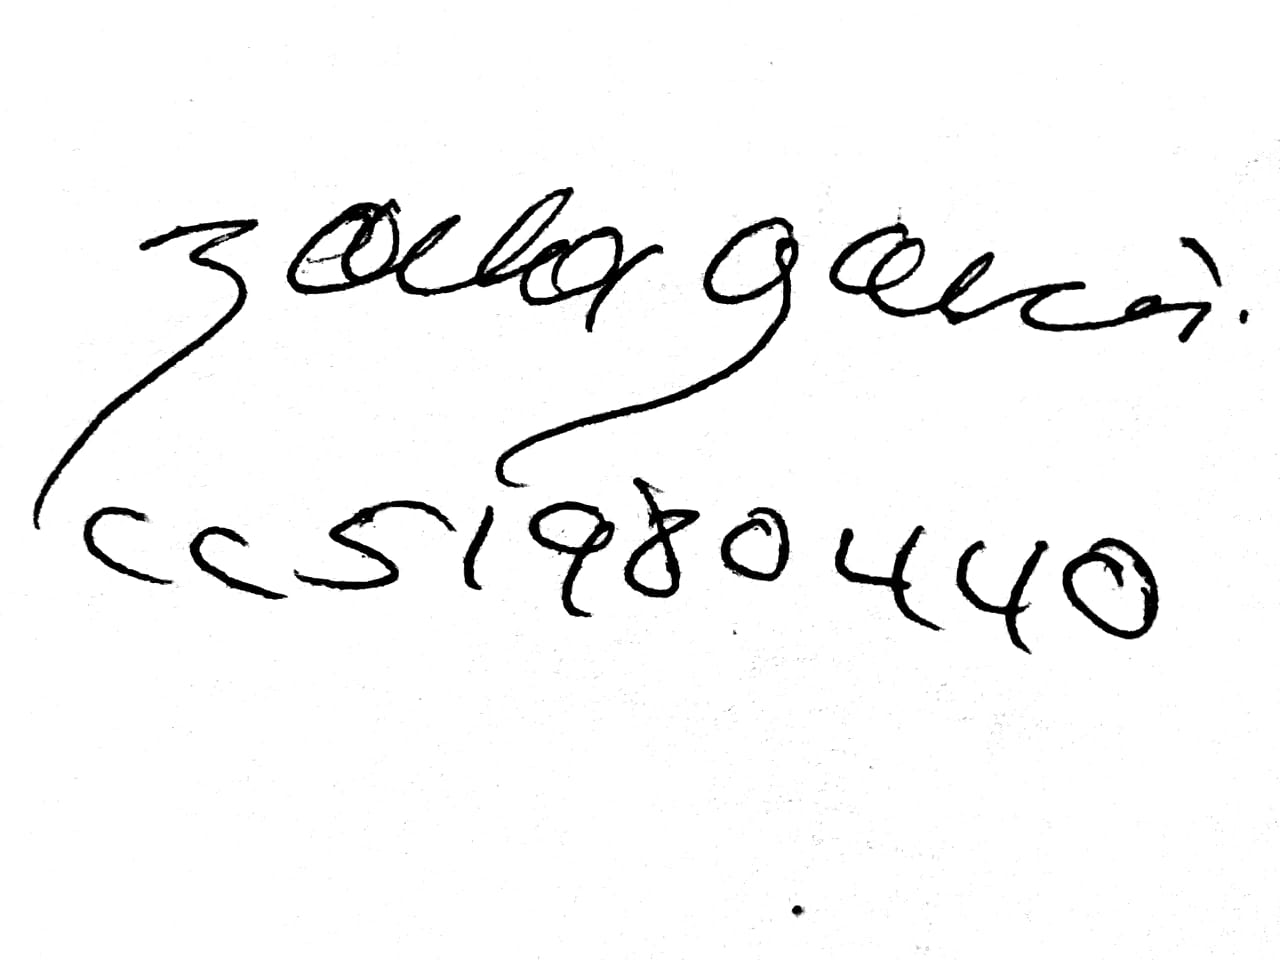 Zoila Garcia.
CC 51980440